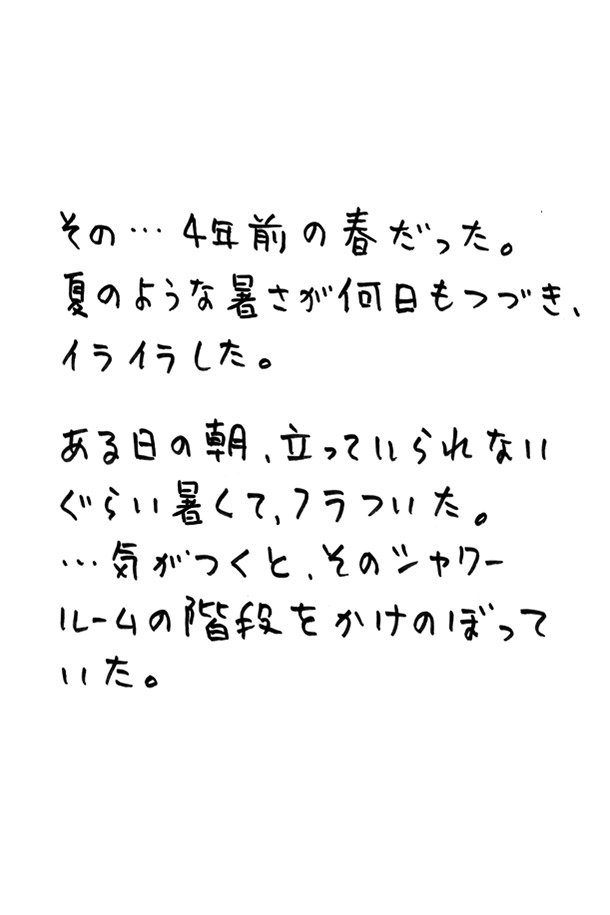 その…4年前の春だった。
夏のような暑さが何日もつづき、
イライラした。
ある日の朝、立っていられない
ぐらい暑くて、フラついた。
…気がつくと、そのシャワー
ルームの階段をかけのぼって
いた。